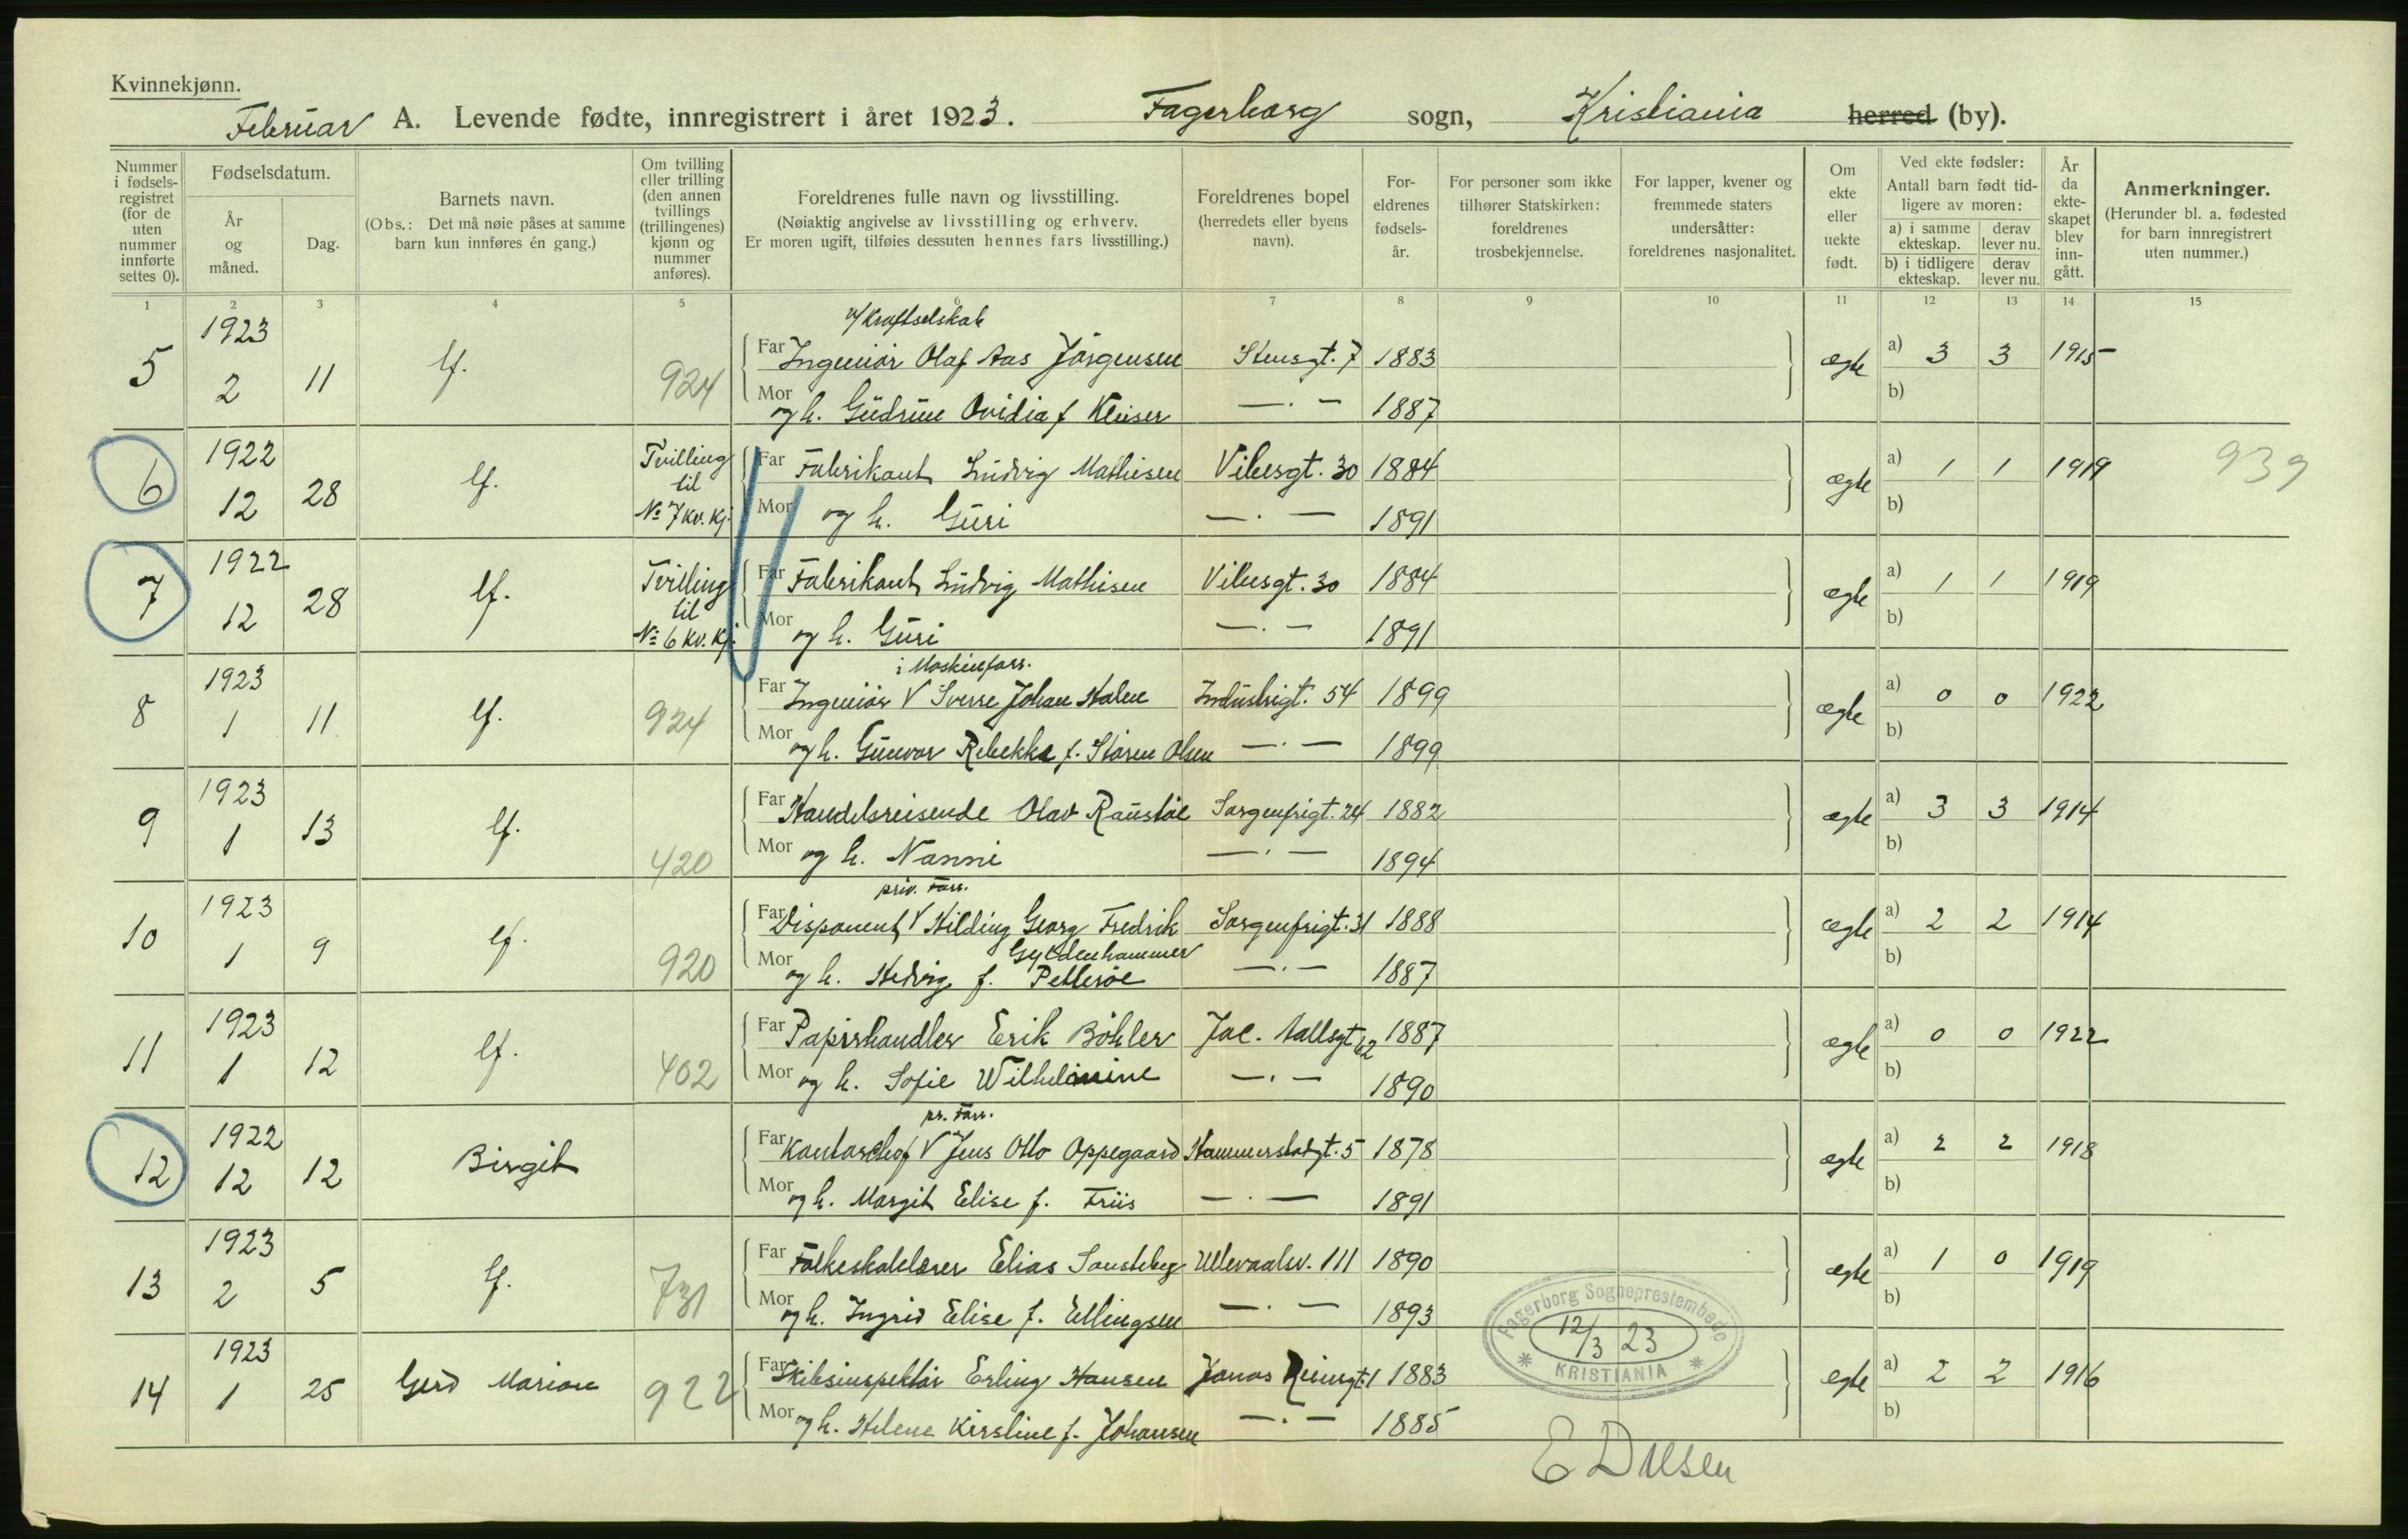 Kvinnekjønn.
Februar A. Levende fødte, innregistrert i året 1923. Fagerborg sogn, Kristiania herred (by).
Nummer i fødsels-registret (for de uten nummer innførte settes 0).
Fødselsdatum.
År og måned.
Dag.
Barnets navn.
(Obs.: Det må nøie påses at samme barn kun innføres én gang.)
Om tvilling eller trilling (den annen tvillings (trillingenes) kjønn og nummer anføres).
Foreldrenes fulle navn og livsstilling.
(Nøiaktig angivelse av livsstilling og erhverv.
Er moren ugift, tilføies dessuten hennes fars livsstilling.)
Foreldrenes bopel (herredets eller byens navn).
For-eldrenes fødsels-år.
For personer som ikke tilhører Statskirken: foreldrenes trosbekjennelse.
For lapper, kvener og fremmede staters undersåtter: foreldrenes nasjonalitet.
Om ekte eller uekte født.
Ved ekte fødsler:
Antall barn født tid-ligere av moren:
a) i samme ekteskap. derav lever nu.
b) i tidligere ekteskap. derav lever nu.
År da ekte-skapet blev inn-gått.
Anmerkninger.
(Herunder bl. a. fødested for barn innregistrert uten nummer.)
1 2 3 4 5 6 7 8 9 10 11 12 13 14 15
v/ Kraftselskab
5 1923 2 11 lf. 924 Far Ingeniør Olaf Aas Jørgensen Stensgt. 7 1883 ægte a) 3 3 1915
Mor og h. Gudrun Ovidia f Kluser —·— 1887 b)
6 1922 12 28 lf. Tvilling til No 7 kv. kj. Far Fabrikant Ludvig Mathisen Vibesgt. 30 1884 ægte a) 1 1 1919 939
Mor og h. Guri —·— 1891 b)
7 1922 12 28 lf. Tvilling til No 6 kv. kj. Far Fabrikant Ludvig Mathisen Vibesgt. 30 1884 ægte a) 1 1 1919
Mor og h. Guri —·— 1891 b)
i Maskinforr.
8 1923 1 11 lf. 924 Far Ingeniør V Sverre Johan Halne Industrigt. 54 1899 ægte a) 0 0 1922
Mor og h. Gunvor Rebekka f. Støren Olsen —·— 1899 b)
9 1923 1 13 lf. 420 Far Handelsreisende Olav Raustøl Sorgenfrigt. 24 1882 ægte a) 3 3 1914
Mor og h. Nanni —·— 1894 b)
priv. Forr.
10 1923 1 9 lf. 920 Far Disponent V Hilding Georg Fredrik Gyldenhammer Sorgenfrigt. 31 1888 ægte a) 2 2 1914
Mor og h. Hedvig f. Pettersøe —·— 1887 b)
11 1923 1 12 lf. 402 Far Papirhandler Erik Böhler Jac. Aallsgt 62 1887 ægte a) 0 0 1922
Mor og h. Sofie Wilhelmine —·— 1890 b)
pr. Forr.
12 1922 12 12 Birgit Far Kontorchef V Jens Otto Oppegaard Hammerstadgt. 5 1878 ægte a) 2 2 1918
Mor og h. Margit Elise f. Friis —·— 1891 b)
13 1923 2 5 lf. 731 Far Folkeskolelærer Elias Ullevaalsv. 111 1890 ægte a) 1 0 1919
Mor og h. Ingrid Elise f. Ellingsen —·— 1893 b)
14 1923 1 25 Gerd Marion 922 Far Skibsinspektør Erling Hansen Jonas Reinsgt. 1 1883 ægte a) 2 2 1916
Mor og h. Helene Kirstine f. Johansen —·— 1885 b)
Fagerborg Sogneprestembede
12/3 23
* KRISTIANIA *